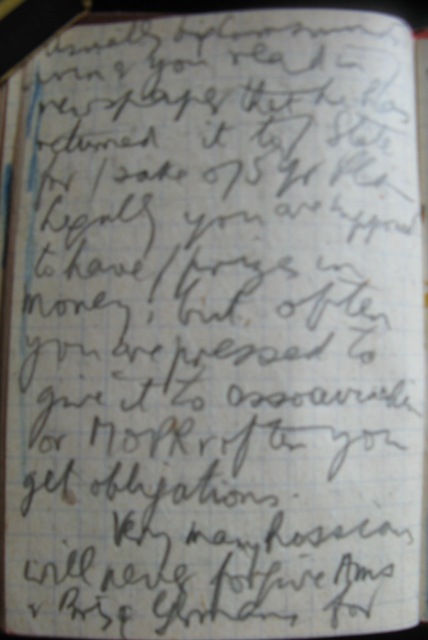 usually by Communist
wins you read in
newspaper that he has
returned it to / State
for / sake of 5 yr Plan
Legally you are supposed
to have / prizes in
money, but often
you are pressed to
give it to
or MOPR or often you
get obligations.
Very many Russians
will never forgive Ams
& Germans for